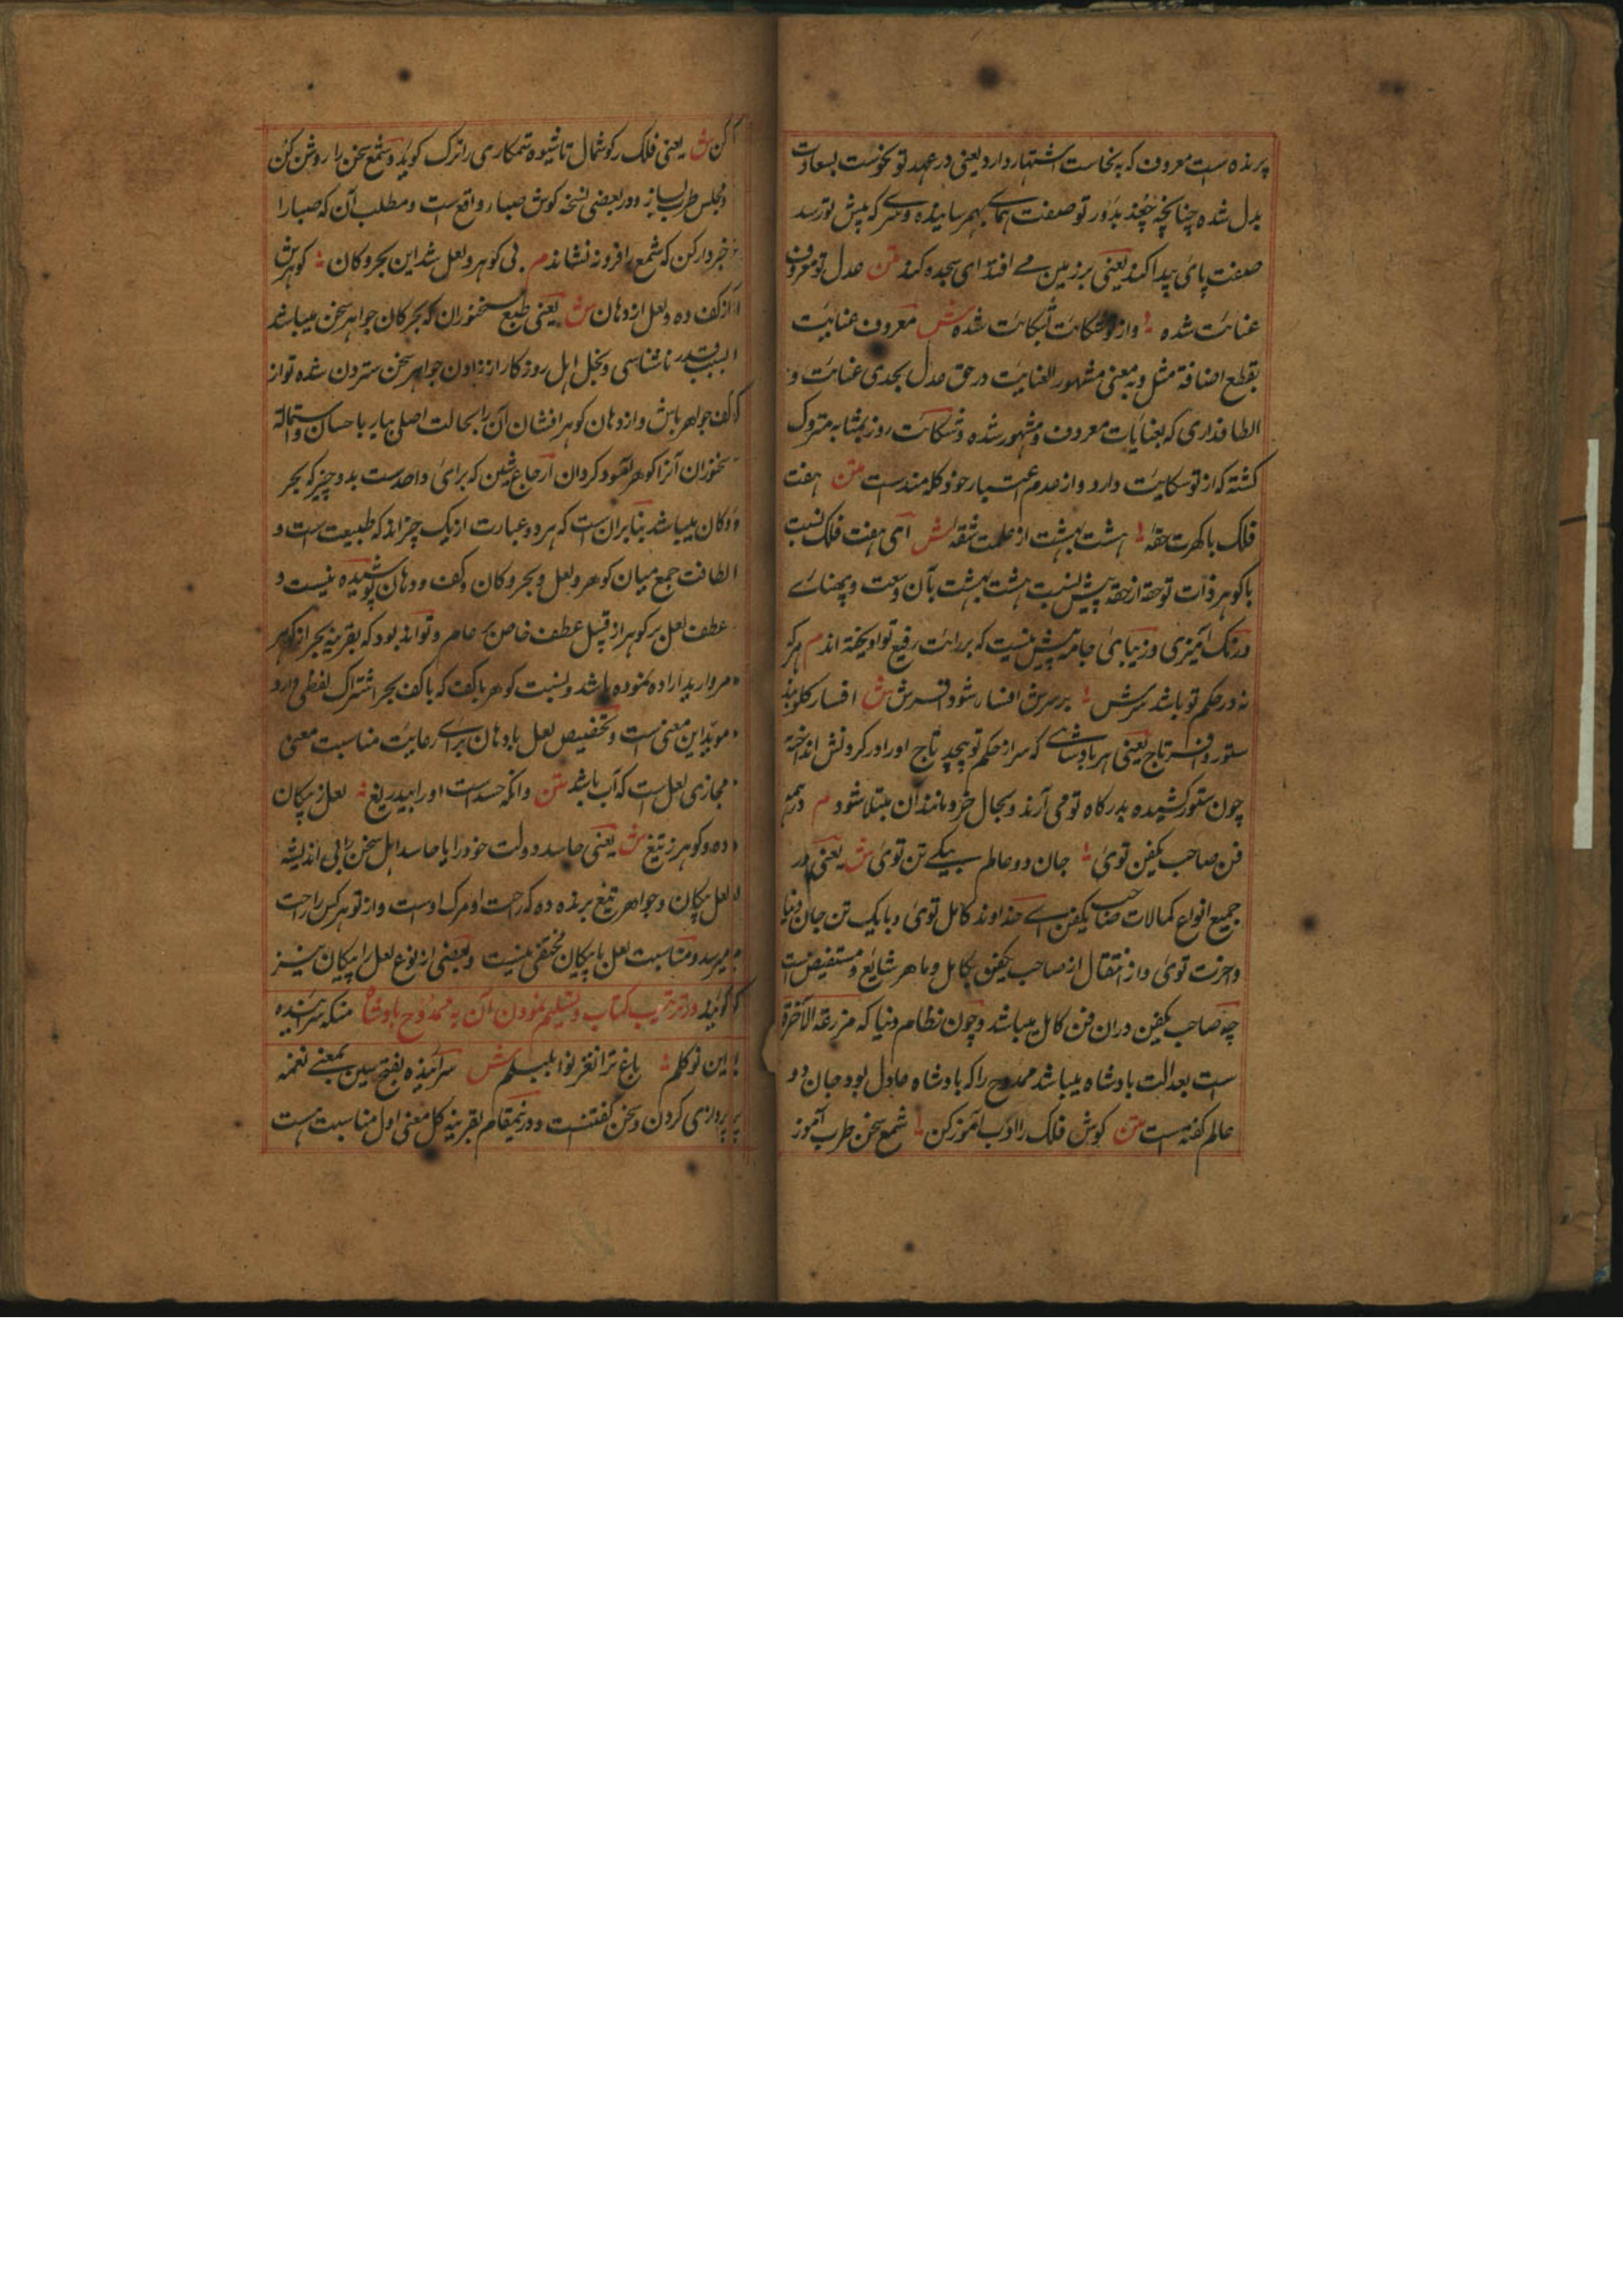 پرنده ست معروف که به نحاست اشتهار دارد یعنی در عهد تو نحوست بسعادت
بدل شده چنانچه چغد بدور تو صفت همای بهم رسانیده و سر که پیش تو رسد
صفت پای پیدا کند یعنی بر زمین می افتد ای سجده کند متن عدل تو معروف
عنایت شده وازو شکایت شده ش معروف عنایت
بقطع اضافة مثل وبه معنی مشهور العنایت در حق عدل بجدی عنایت و
الطاف داری که بعنایات معروف و مشهور شده و شکایت روز بمثابه متروک
کشته که از تو شکایت دارد و از عدم اعتبار خود کله مندست متن هفت
فلک با کهرت حقه هشت بهشت از علمت شقه ش ای هفت فلک نسبت
با کوهر ذات تو حقه از حقه پیش نسبت هشت بهشت بآن وسعت و پهنائے
و رنک آمیزی و زیبای جامه پیش نیست که برایت رفیع تو آویخته اند م هر که
نه در حکم تو باشد سرش بر سرش افسار شود افسرش ش افسار کلو بند
ستور و افسر تاج یعنی هر بادشاهے که سر از حکم تو پیچد تاج او را در کردنش انداخته
چون ستور کشیده بدرکاه تو می آرند و بحال خر و مانند آن مبتلا شود م در همه
فن صاحب یکفن توئی جان دو عالم بیکے تن توئی ش یعنی در
جمیع انواع کمالات صاحب یکفن اے خداوند کامل توئی و بایک تن جان دنیا
و آخرت توئی و از انتقال از صاحب یکفن بکامل و ماهر شایع و مستفیض است
چه صاحب یکفن در ان فن کامل میباشد و چون نظام دنیا که مزرعة الآخرة
است بعدالت بادشاه میباشد ممدوح را که بادشاه عادل بود جان دو
عالم کفته است متن کوش فلک را ادب آموز کن شمع سخن طرب آموز
کن ش یعنی فلک را کوشمال تا شیوه ستمکاری را ترک کوید و شمع سخن را روشن کن
و مجلس طرب بساز و در بعضی نسخه کوش صبا واقع است و مطلب آن که صبا را
خبردار کن که شمع را فرو نه نشاند م بی کوهر و لعل شد این بحر و کان کوهرش
از کف ده و لعل از دهان ش یعنی طبع سخنوران که بحر کان جواهر سخن میباشد
بسبب قدر ناشناسی و بخل اهل روزکار از زادن جواهر سخن سترون شده تو از
کف جواهر باش و از دهان کوهر افشان آن را بحالت اصلی بیار باحسان و استمالة
سخنوران آنرا کوهر آمود کردان ارجاع شین که برای واحدست بدو چیز که بحر
و کان میباشد بنابران است که هر دو عبارت از یک چیز اند که طبیعت است و
الطافت جمع میان کوهر و لعل و بحر و کان و کف و دهان پوشیده نیست و
عطف لعل بر کوهر از قبیل عطف خاص بر عام و تواند بود که بقرینه بحر از کوهر
مروارید اراده نموده باشد و نسبت کوهر با کف که با کف بحر اشتراک لفظی دارد
موید این معنی است و تخصیص لعل با دهان برائے رعایت مناسبت معنی
مجازی لعل است که لب باشد متن وانکه حسد است او را بیدریغ لعل ز پیکان
ده و کوهر ز تیغ ش یعنی حاسد دولت خود را یا حاسد اهل سخن را بی اندیشه
لعل پیکان و جواهر تیغ برنده ده که راحت او مرک اوست و از تو هر کس راحت
میرسد و مناسبت لعل با پیکان مخفی نیست و بعضی از نوع لعل را پیکان نیز
کویند در ترتیب کتاب و تسلیم نمودن آن به ممدوح بادشاه منکه سراینده
این نو کلم باغ ترا نغز نوا بلبلم ش سراینده بفتح سین بمعنے نغمه
پردازی کردن و سخن کفتنست و درینمقام بقرینه کل معنی اول مناسبت است